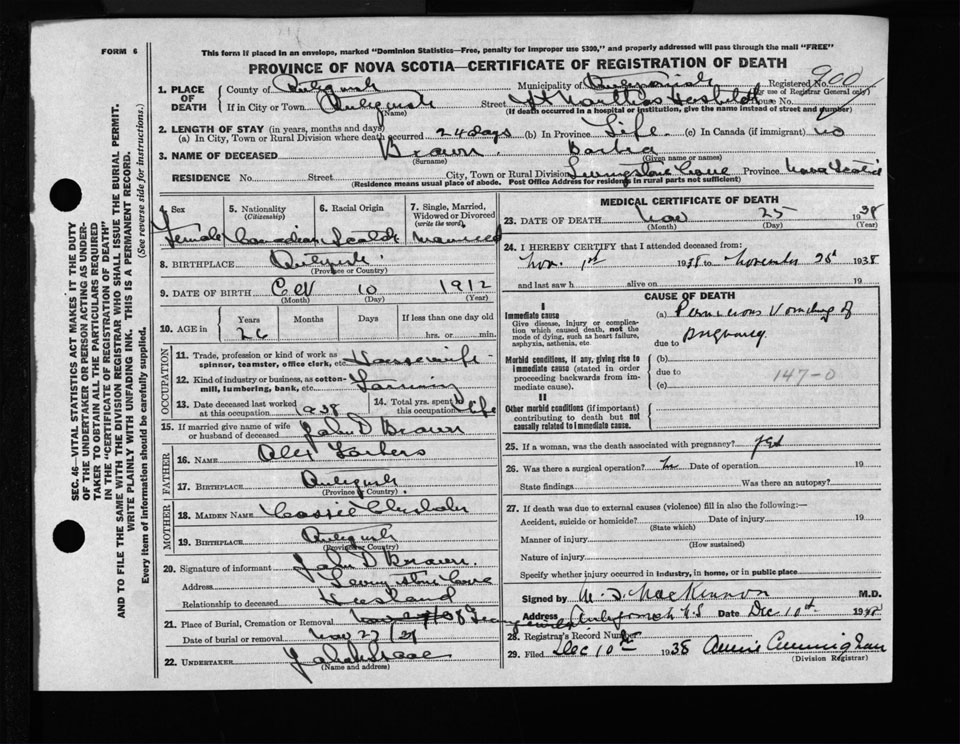 FORM 6
This form if placed in an envelope, marked "Dominion Statistics—Free, penalty for improper use $300," and properly addressed will pass through the mail "FREE"
PROVINCE OF NOVA SCOTIA—CERTIFICATE OF REGISTRATION OF DEATH
1. PLACE OF DEATH
County of Municipality of Registered No. 900
(For use of Registrar General only)
If in City or Town Street St Marthas House No.
(Name) (If death occurred in a hospital or institution, give the name instead of street and number)
2. LENGTH OF STAY (in years, months and days)
(a) In City, Town or Rural Division where death occurred 24 days (b) In Province Life (c) In Canada (if immigrant) no
3. NAME OF DECEASED Brown
(Surname) (Given name or names)
RESIDENCE No. Street City, Town or Rural Division Livingstone Cove Province Nova Scotia
(Residence means usual place of abode. Post Office Address for residents in rural parts not sufficient)
4. Sex Female
5. Nationality (Citizenship) Canadian
6. Racial Origin Scotch
7. Single, Married, Widowed or Divorced (write the word) Married
8. BIRTHPLACE
(Province or Country)
9. DATE OF BIRTH 10 1912
(Month) (Day) (Year)
10. AGE in Years Months Days If less than one day old
26 hrs. or min.
OCCUPATION
11. Trade, profession or kind of work as spinner, teamster, office clerk, etc. Housewife
12. Kind of industry or business, as cotton-mill, lumbering, bank, etc. Farming
13. Date deceased last worked at this occupation 1938
14. Total yrs. spent in this occupation Life
15. If married give name of wife or husband of deceased John D Brown
FATHER
16. NAME Alex
17. BIRTHPLACE
(Province or Country)
MOTHER
18. MAIDEN NAME Cassie Chisholm
19. BIRTHPLACE
(Province or Country)
20. Signature of informant John D Brown
Address Livingstone Cove
Relationship to deceased Husband
21. Place of Burial, Cremation or Removal
Date of burial or removal Nov 27
22. UNDERTAKER
(Name and address)
MEDICAL CERTIFICATE OF DEATH
23. DATE OF DEATH Nov 25 1938
(Month) (Day) (Year)
24. I HEREBY CERTIFY that I attended deceased from:
Nov. 1st 1938 to November 25th 1938
and last saw h alive on 19
CAUSE OF DEATH
I
Immediate cause
Give disease, injury or complication which caused death, not the mode of dying, such as heart failure, asphyxia, asthenia, etc.
(a) Pernicious Vomiting of
due to Pregnancy
Morbid conditions, if any, giving rise to immediate cause (stated in order proceeding backwards from immediate cause).
(b)
due to 147-0
(c)
II
Other morbid conditions (if important) contributing to death but not causally related to immediate cause.
25. If a woman, was the death associated with pregnancy? yes
26. Was there a surgical operation? no Date of operation 19
State findings Was there an autopsy?
27. If death was due to external causes (violence) fill in also the following:—
Accident, suicide or homicide? Date of injury 19
(State which)
Manner of injury
(How sustained)
Nature of injury
Specify whether injury occurred in industry, in home, or in public place
Signed by MacKinnon M.D.
Address Antigonish N.S Date Dec 10th 1938
28. Registrar's Record Number
29. Filed Dec 10th 1938 Annie Cunningham
(Division Registrar)
SEC. 46—VITAL STATISTICS ACT MAKES IT THE DUTY OF THE UNDERTAKER OR PERSON ACTING AS UNDERTAKER TO OBTAIN ALL THE PARTICULARS REQUIRED IN THE "CERTIFICATE OF REGISTRATION OF DEATH"
AND TO FILE THE SAME WITH THE DIVISION REGISTRAR WHO SHALL ISSUE THE BURIAL PERMIT.
WRITE PLAINLY WITH UNFADING INK. THIS IS A PERMANENT RECORD.
Every item of information should be carefully supplied. (See reverse side for instructions.)